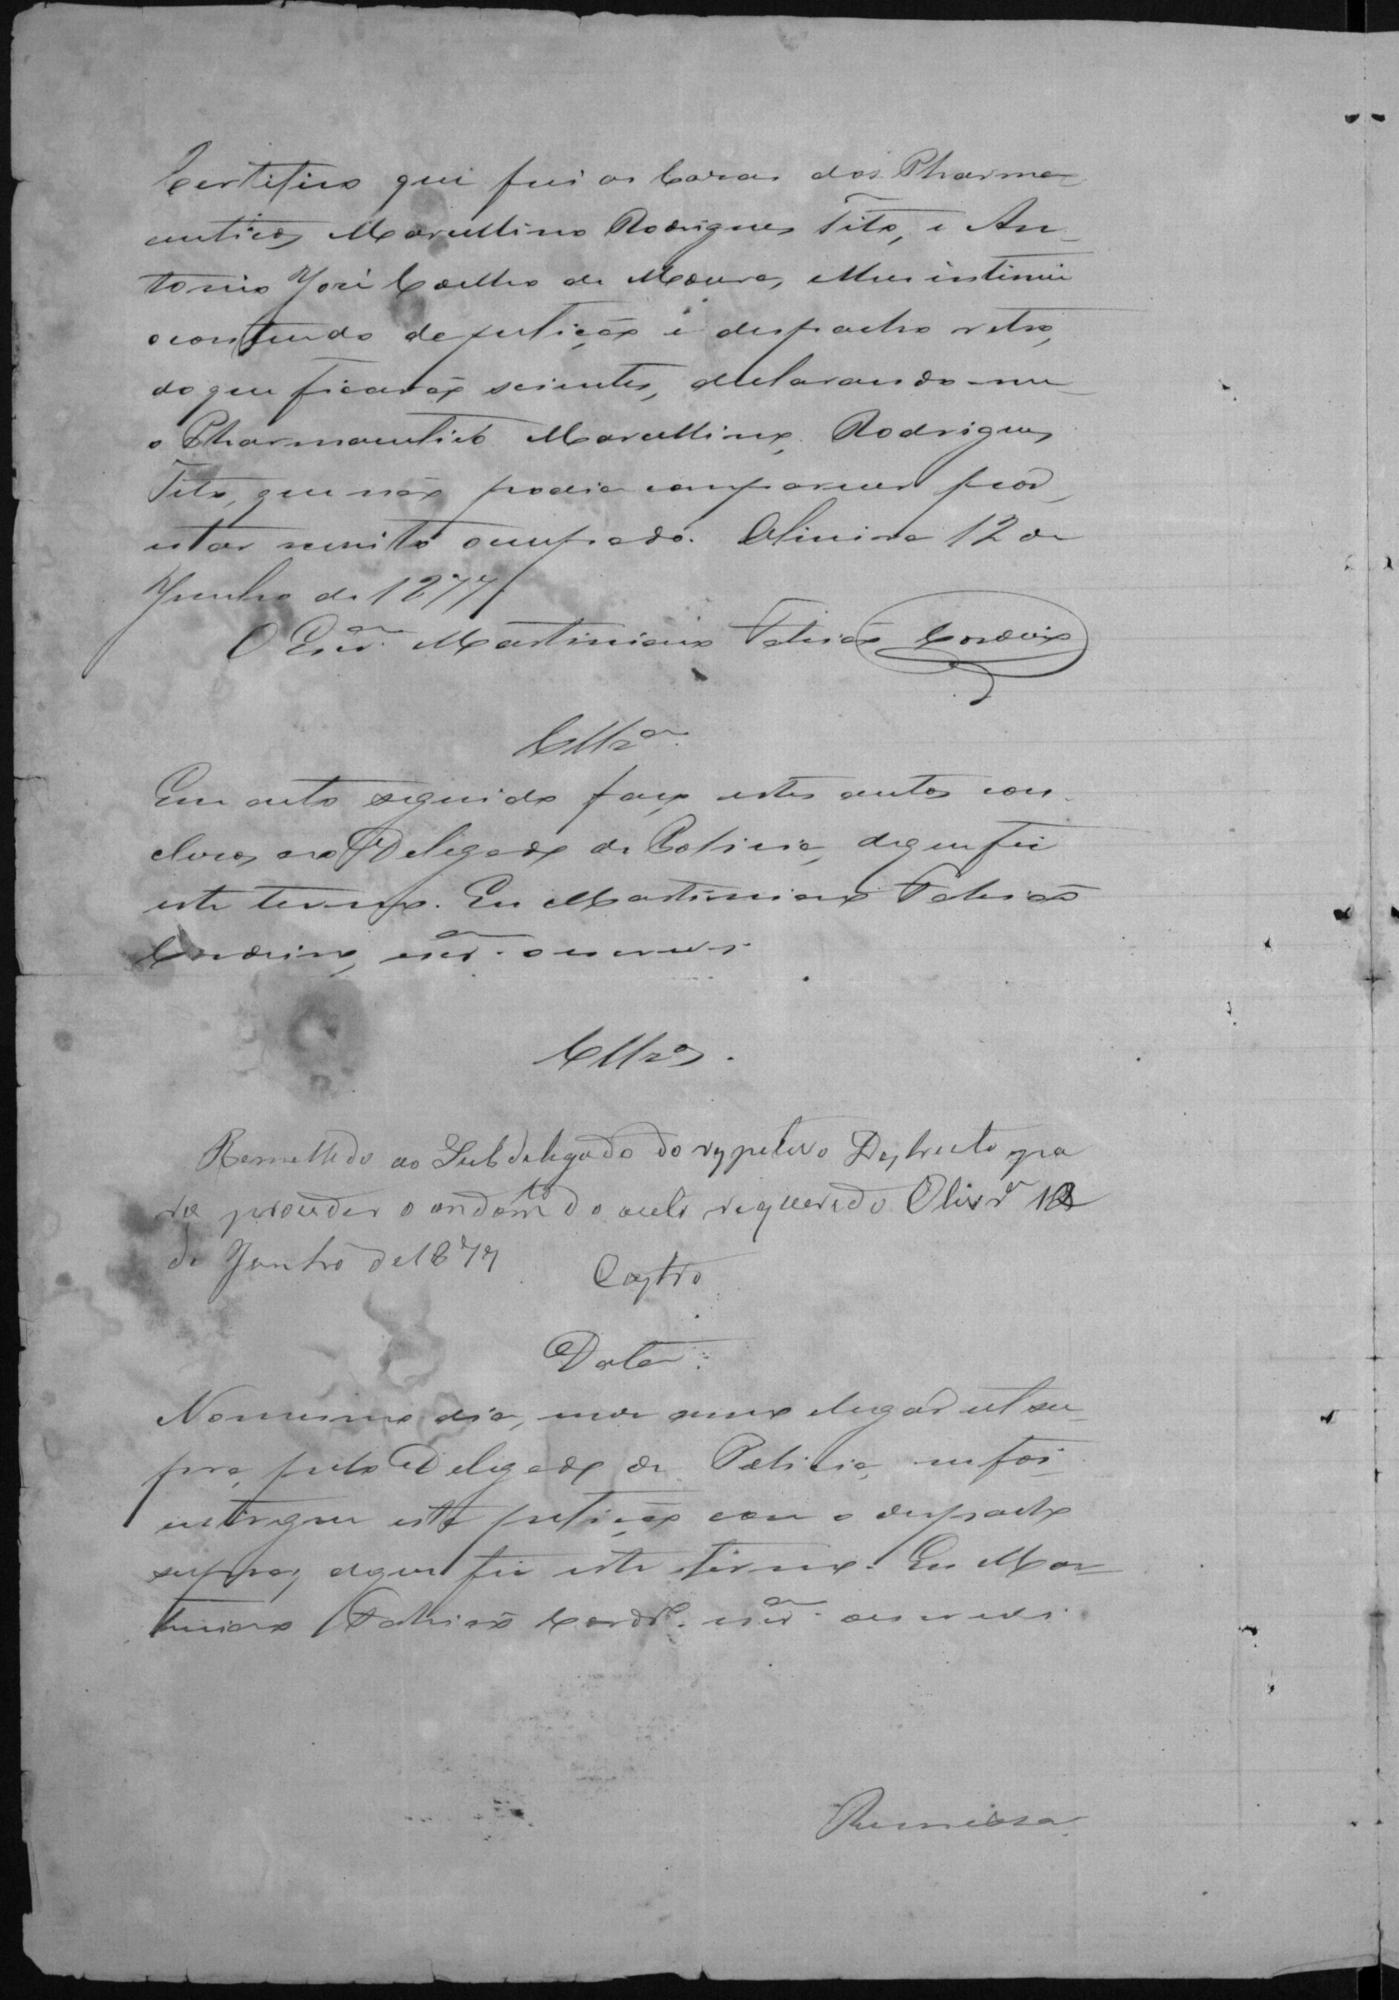 Certifico que fui as Cazas dos Pharma-
ceuticos Marcellino Rodrigues Tito, e An-
tonio José Coelho de Moura, e lhes intimei
o contendo de petição e despacho retro,
do que ficarão scientes, declarando-me
o Pharmaceutico Marcellino Rodrigues
Tito, que não podia comparecer por
estar muito occupado. Oliveira 12 de
Junho de 1877
O Escr.am Martiniano
Cllzam
Em acto seguido faço estes autos con-
clusos ao Delegado de Policia, de que fiz
este termo. Eu Martiniano
escr.am o escrevi
Cllzos.
Remettido ao Subdelegado do respetivo Destricto pa
ra proceder o andam.to do auto requerido Olivr.a 12
de Junho de 1877 Castro
Data
No mesmo dia, mez anno e lugar ut su-
pra, pelo Delegado de Policia me foi
entregue esta petição com o despacho
supra, de que fiz este termo. Eu Mar
tiniano escr.am o escrevi
Remessa